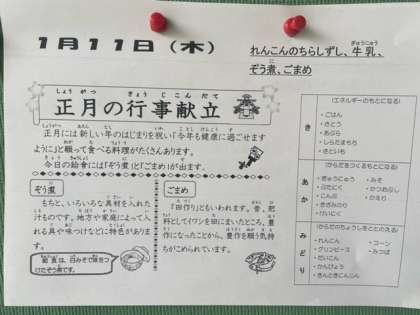 1月11日(木)
れんこんのちらしずし、牛乳、
ぞう煮、ごまめ
正月の行事献立
正月には新しい年のはじまりを祝い「今年も健康に過ごせます
ように」と願って食べる料理がたくさんあります。
今日の給食には「ぞう煮」と「ごまめ」が出ます。
ぞう煮
もちと、いろいろな具材を入れた
汁ものです。地方や家庭によって入
れる具や味つけなどに特色がありま
す。
給食は、白みそで味をつ
けたぞう煮です。
ごまめ
「田作り」ともいわれます。昔、肥
料としてイワシを田にまいたところ、豊
作になったことから、豊作を願う気持
ちがこめられています。
き
(エネルギーのもとになる)
・ごはん
・さとう
・あぶら
・しらたまもち
・さといも
あか
(からだをつくるもとになる)
・ぎゅうにゅう
・みそ
・ぶたにく
・かつおぶし
・こんぶ
・かまぼこ
・きざみのり
・けいにく
みどり
(からだのちょうしをととのえる)
・れんこん
・コーン
・グリンピース
・みつば
・だいこん
・かんぴょう
・きんときにんじん